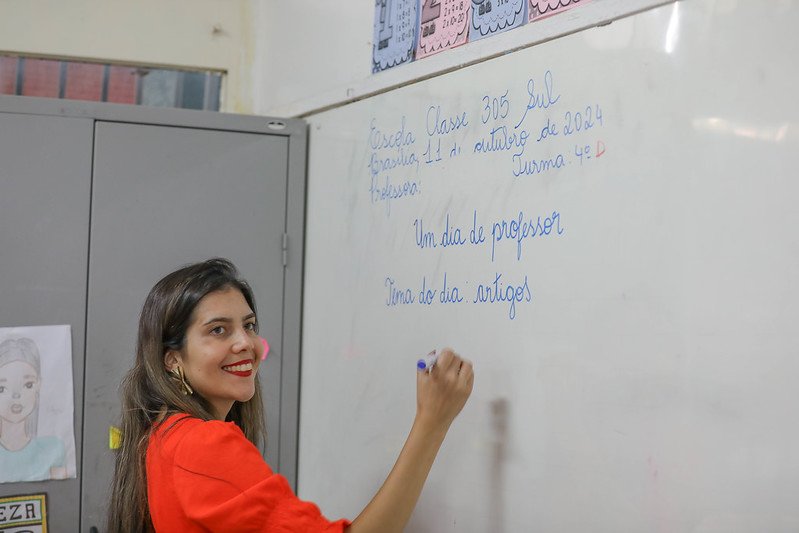 Escola Classe 305 Sul
Brasília, 11 de outubro de 2024
Turma: 4º D
Professora:
Um dia de professor
Tema do dia: artigos
EZA